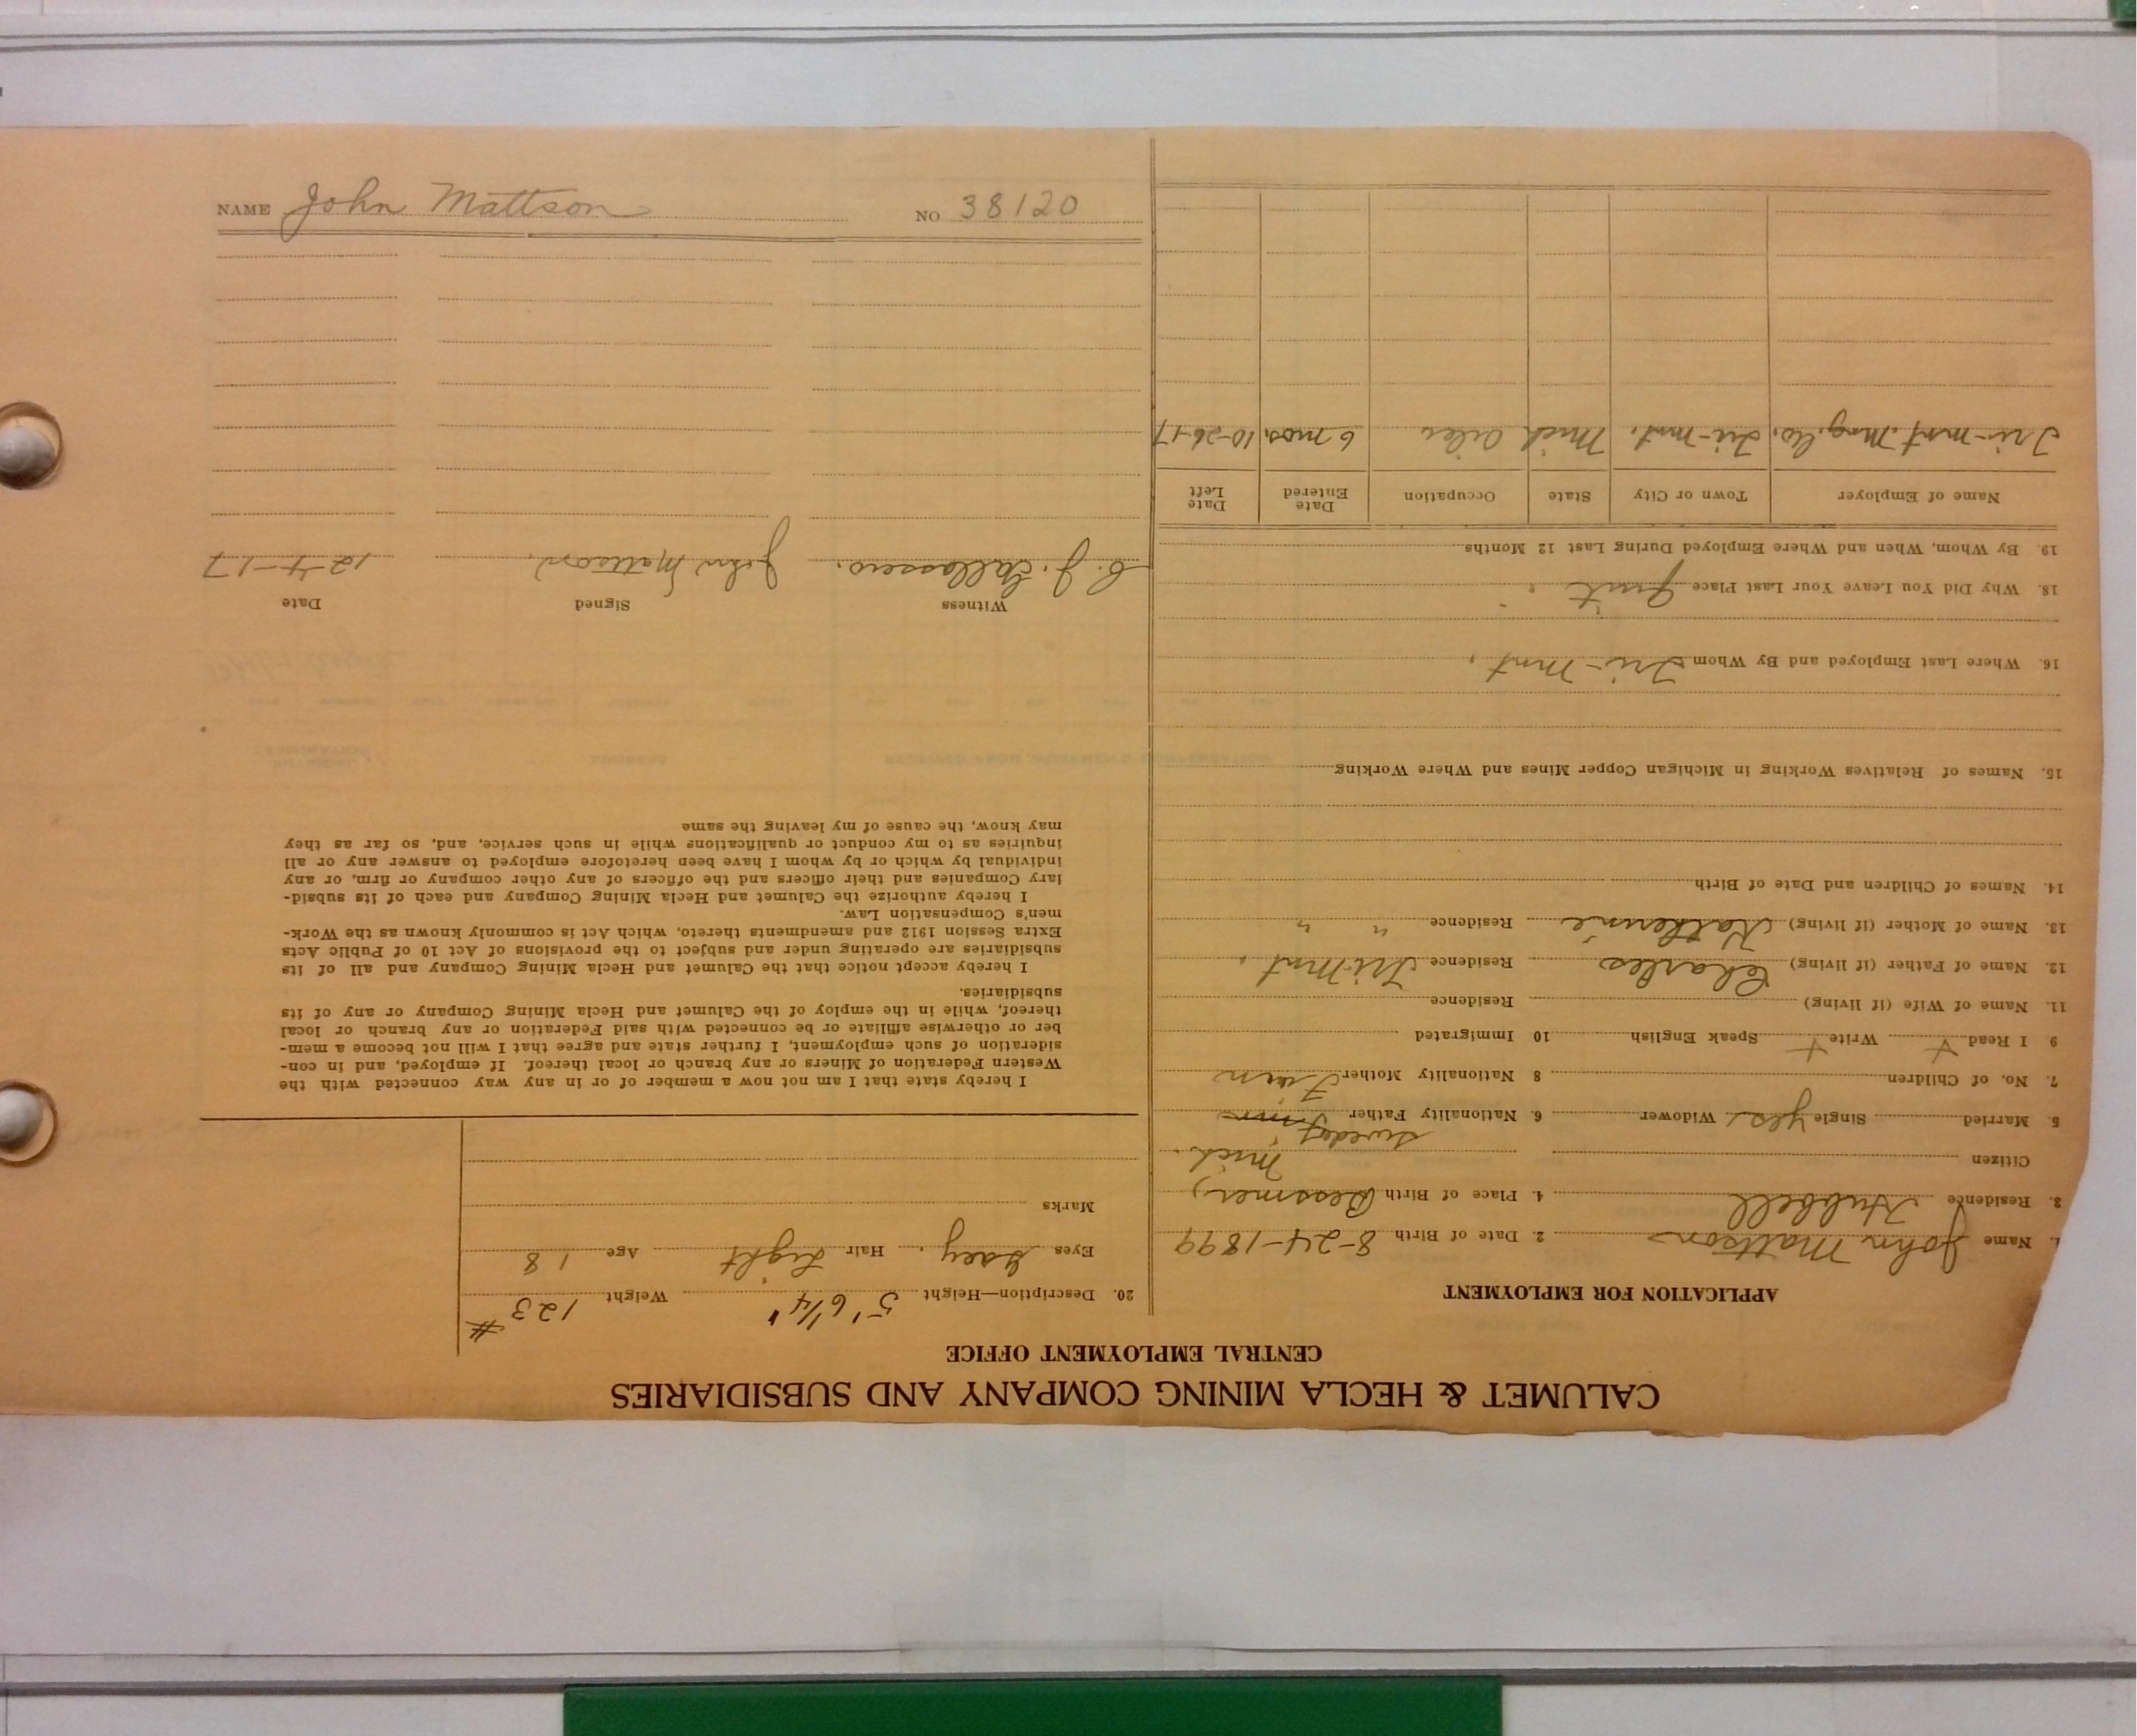 CALUMET & HECLA MINING COMPANY AND SUBSIDIARIES
CENTRAL EMPLOYMENT OFFICE
APPLICATION FOR EMPLOYMENT
1. Name John Mattson 2. Date of Birth 8-24-1899
3. Residence Hubbell 4. Place of Birth Bessmer,
Citizen Mich.
Swede
5. Married Single yes. Widower 6. Nationality Father Finn
7. No. of Children 8 Nationality Mother Finn
9 I Read Write Speak English 10 Immigrated
11. Name of Wife (if living) Residence
12. Name of Father (if living) Charles Residence Tri-Mnt.
13. Name of Mother (if living) Katherine Residence " "
14. Names of Children and Date of Birth
15. Names of Relatives Working in Michigan Copper Mines and Where Working
16. Where Last Employed and By Whom Tri-Mnt.
18. Why Did You Leave Your Last Place Quit
19. By Whom, When and Where Employed During Last 12 Months
Name of Employer Town or City State Occupation Date Entered Date Left
Tri-mnt. Mng. Co. Tri-mnt. Mich Oiler 6 mos. 10-26-17
20. Description—Height 5' 6 1/4" Weight 123 #
Eyes Grey. Hair Light Age 18
Marks
I hereby state that I am not now a member of or in any way connected with the
Western Federation of Miners or any branch or local thereof. If employed, and in con-
sideration of such employment, I further state and agree that I will not become a mem-
ber or otherwise affiliate or be connected with said Federation or any branch or local
thereof, while in the employ of the Calumet and Hecla Mining Company or any of its
subsidiaries.
I hereby accept notice that the Calumet and Hecla Mining Company and all of its
subsidiaries are operating under and subject to the provisions of Act 10 of Public Acts
Extra Session 1912 and amendments thereto, which Act is commonly known as the Work-
men's Compensation Law.
I hereby authorize the Calumet and Hecla Mining Company and each of its subsid-
iary Companies and their officers and the officers of any other company or firm, or any
individual by which or by whom I have been heretofore employed to answer any or all
inquiries as to my conduct or qualifications while in such service, and, so far as they
may know, the cause of my leaving the same
Witness Signed Date
C. J. John Mattson. 12-4-17
NAME John Mattson NO 38120